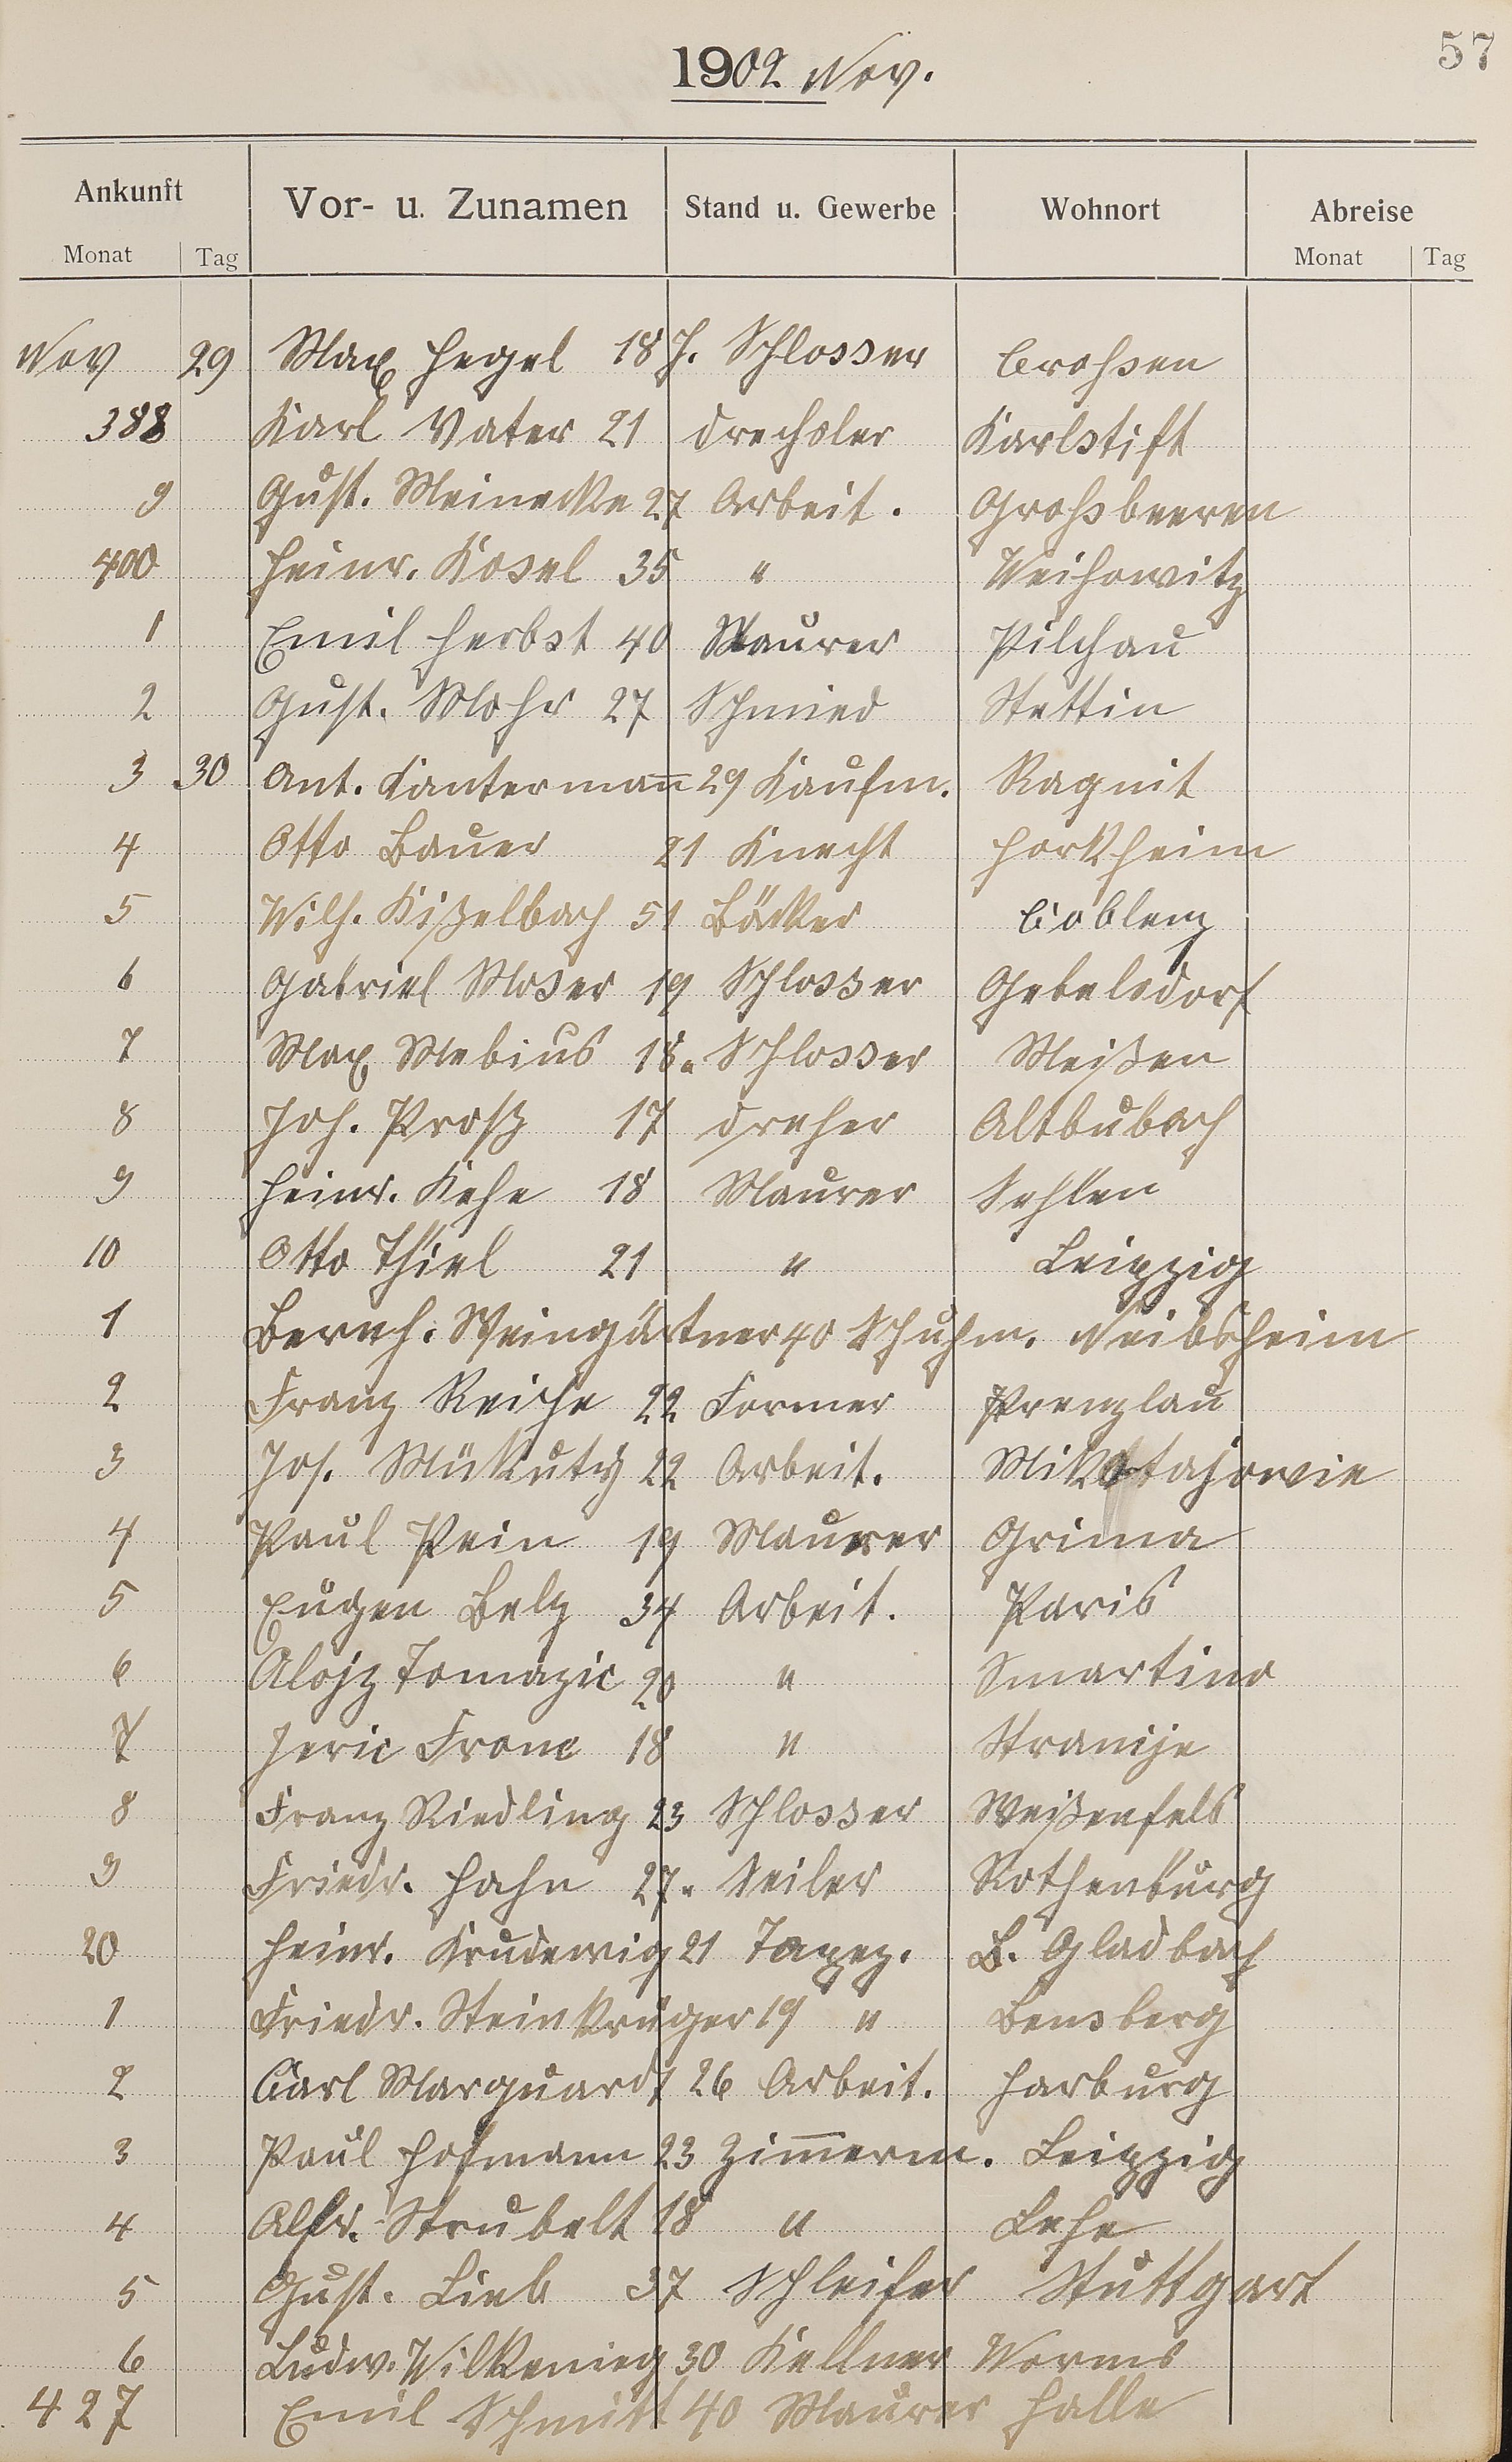 57
1902 Nov.
Ankunft Vor- u. Zunamen Stand u. Gewerbe Wohnort Abreise
Monat Tag Monat Tag
Nov 29 Max Hegel 18 J. Schlosser Croßen
388 Karl Vater 21 Drechsler Karlstift
9 Gust. Meinecke 27 Arbeit. Großbeeren
400 Heinr. Kosel 35 " Weihowitz
1 Emil Herbst 40 Maurer Pilchau
2 Gust. Mohr 27 Schmied Stettin
3 30 Ant. Kantermann 29 Kaufm. Ragnit
4 Otto Bauer 21 Knecht Horkheim
5 Wilh. Kißelbach 51 Bäcker Coblenz
6 Gabriel Moser 19 Schlosser Gebelsdorf
7 Max Mebius 18 " Schlosser Meißen
8 Joh. Proß 17 Dreher Altbubach
9 Heinr. Kehe 18 Maurer Sehlen
10 Otto Thiel 21 " Leipzig
1 Bernh. Weingärtner 40 Schuhm. Neibsheim
2 Franz Reiche 22 Former Prenzlau
3 Jos. 22 Arbeit.
4 Paul Pein 19 Maurer Grima
5 Eugen Belz 34 Arbeit. Paris
6 Alojz Tomazic 20 " Smartino
7 Jeric Franc 18 " Stranije
8 Franz Riedling 23 Schlosser Weißenfels
9 Friedr. Hahn 27 " Seiler Rothenburg
20 Heinr. Krudewig 21 Tapez. B. Gladbach
1 Friedr. Steinkrüger 19 " Bensberg
2 Carl Marquardt 26 Arbeit. Harburg
3 Paul Hofmann 23 Zimmerm. Leipzig
4 Alfr. Strubelt 18 " Lehe
5 Gust. Lieb 37 Schleifer Stuttgart
6 Ludw. Wilkening 30 Kellner Worms
427 Emil Schmitt 40 Maurer Halle